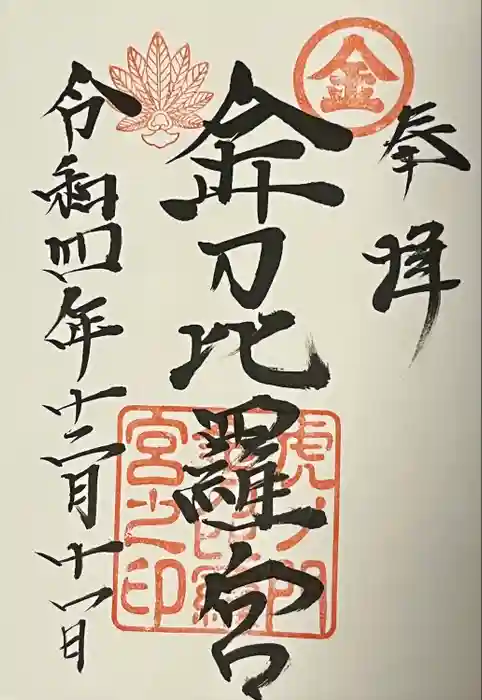 金
奉拝
金刀比羅宮
令和四年十二月十一日
虎ノ門
宮之印